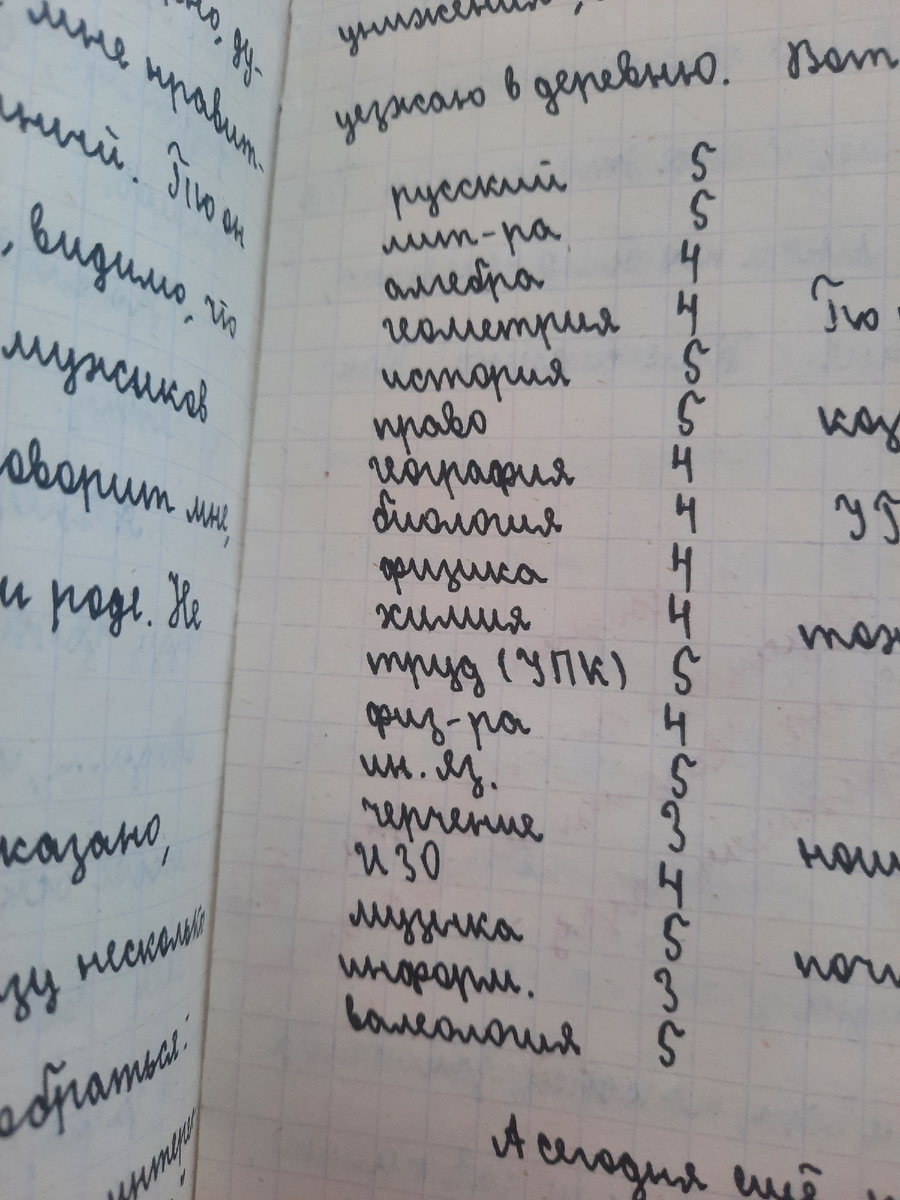 мне нравит-
. Тю он
, видимо, что
мужиков
оворит мне,
и роде. Не
казано,
зу несколько
обраться.
интере
унижения,
уезжаю в деревню. Вот
русский 5
лит-ра 5
алгебра 4
геометрия 4
история 5
право 5
география 4
биология 4
физика 4
химия 4
труд (УПК) 5
физ-ра 4
ин. яз. 5
черчение 3
ИЗО 4
музыка 5
информ. 3
валеология 5
А сегодня ещё
Тю
каз
УТ
тож
наш